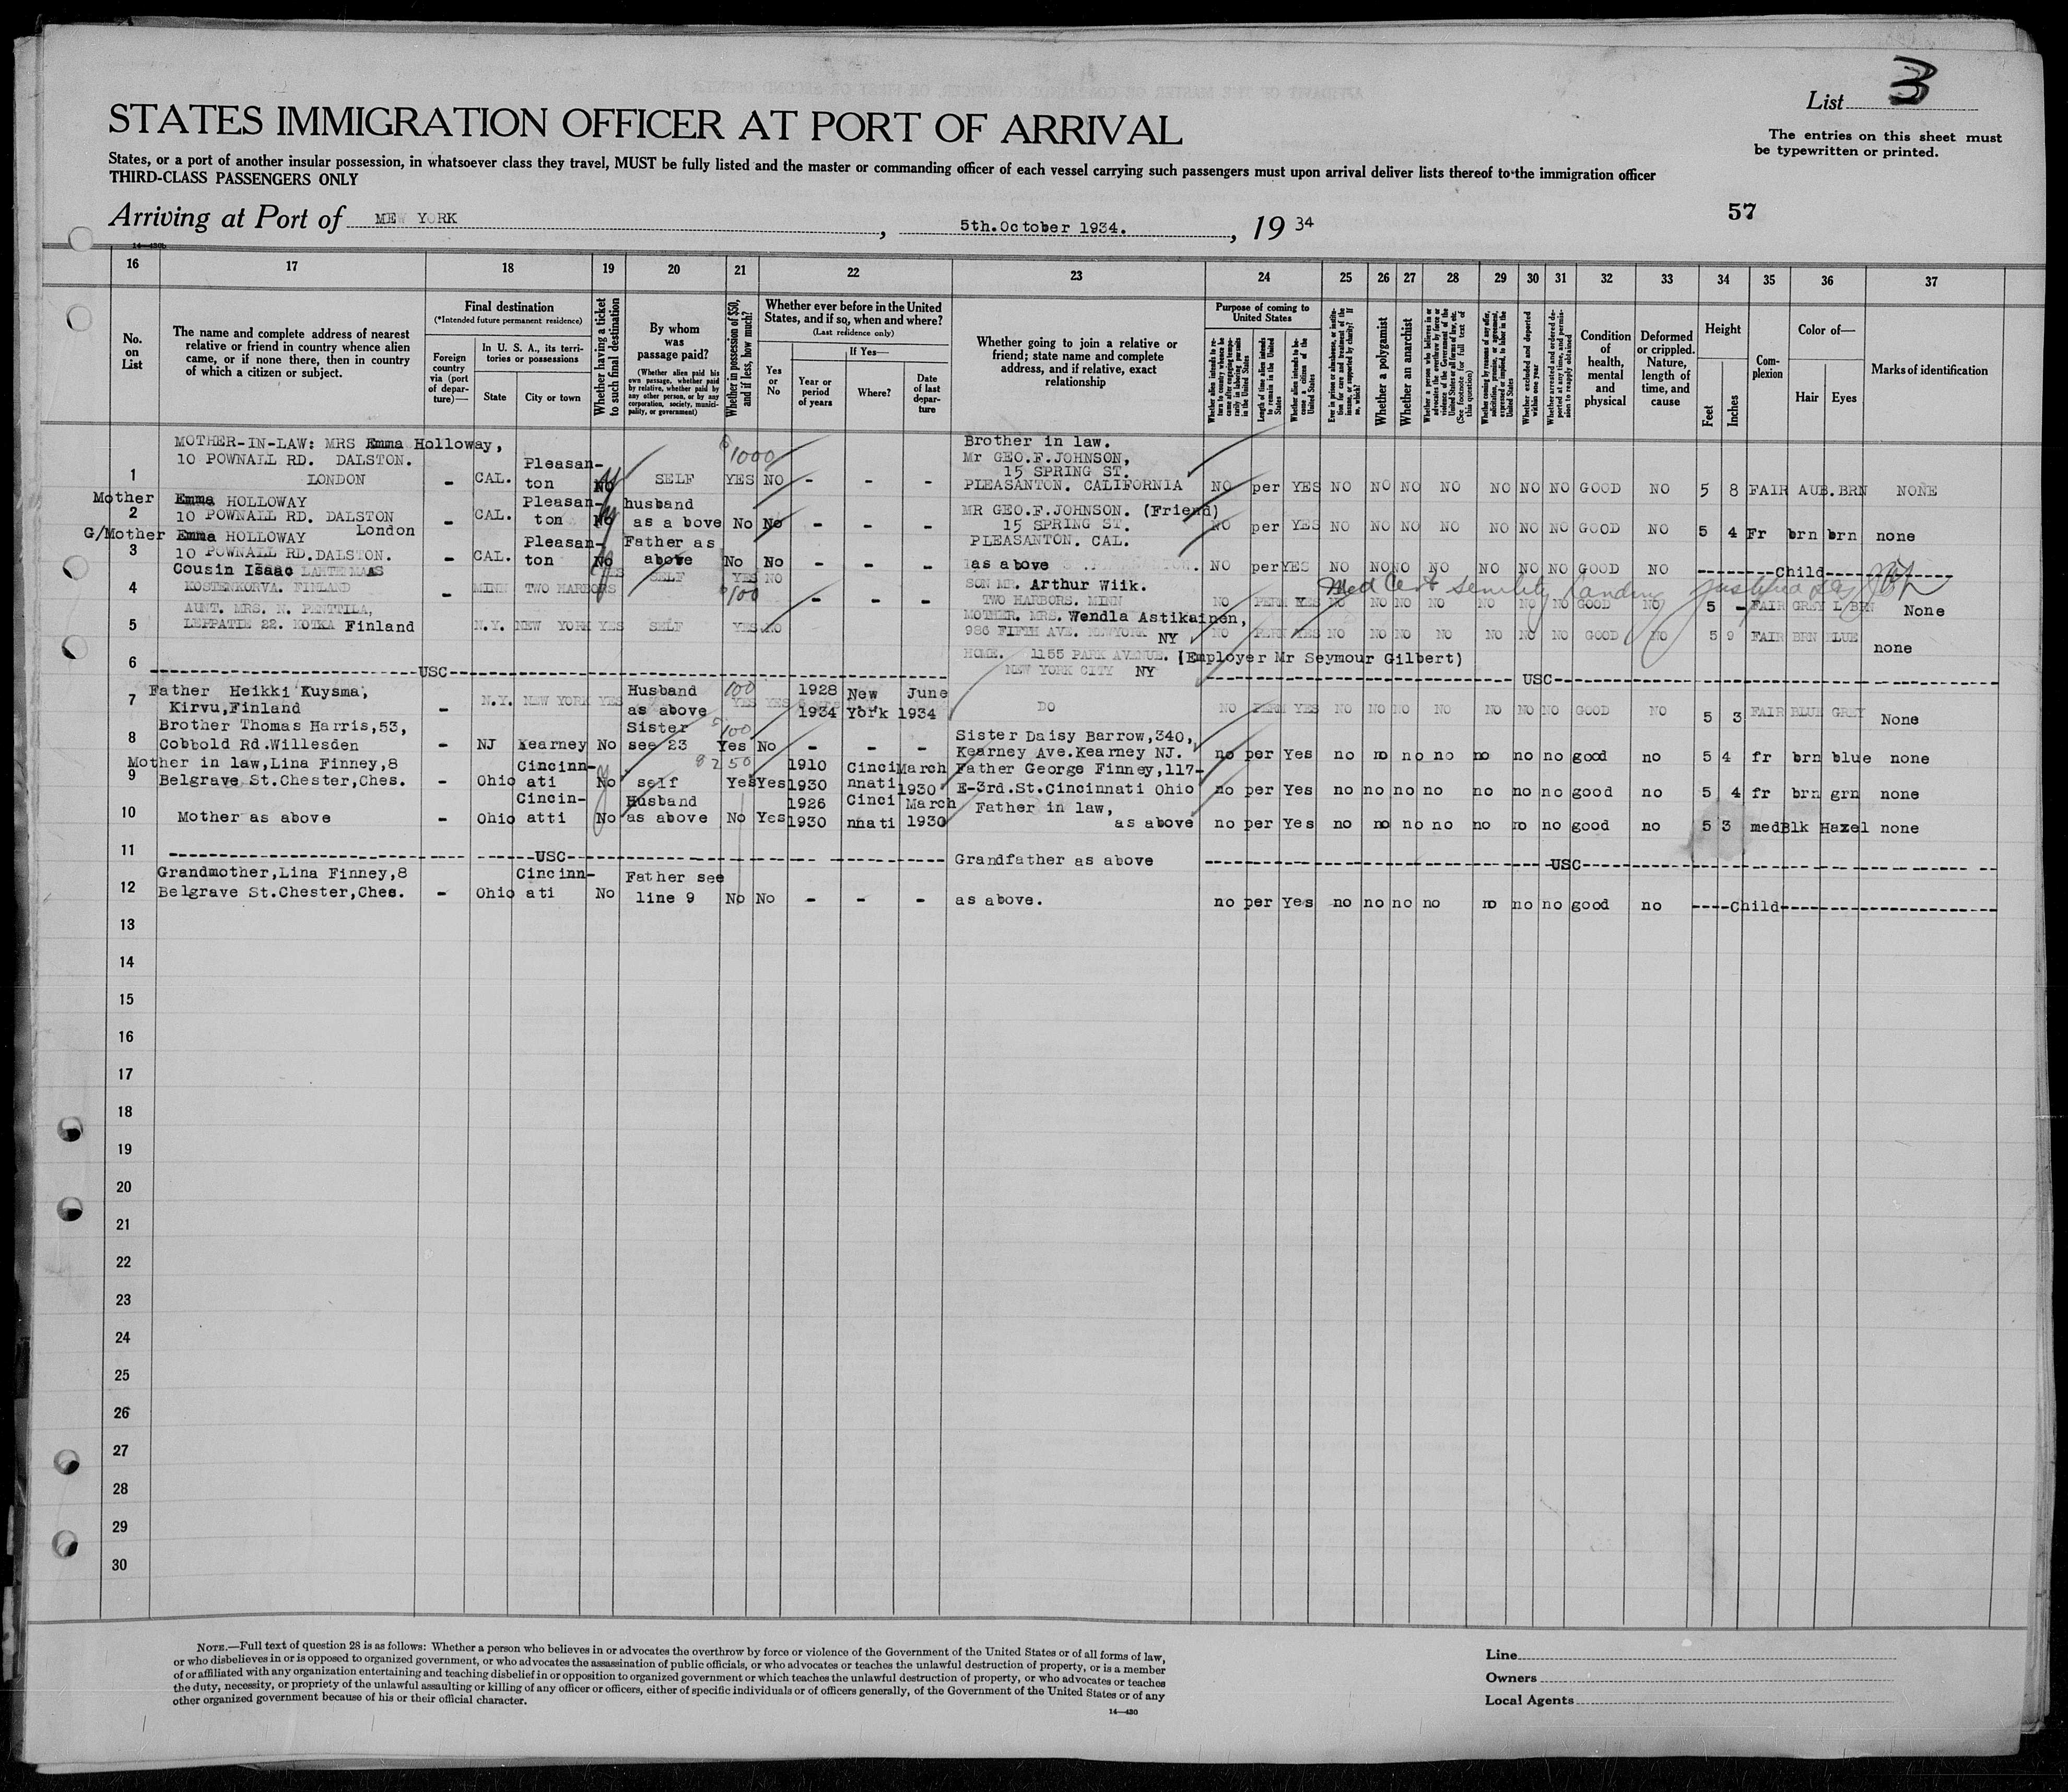 List 3
STATES IMMIGRATION OFFICER AT PORT OF ARRIVAL
The entries on this sheet must
be typewritten or printed.
States, or a port of another insular possession, in whatsoever class they travel, MUST be fully listed and the master or commanding officer of each vessel carrying such passengers must upon arrival deliver lists thereof to the immigration officer
THIRD-CLASS PASSENGERS ONLY
57
Arriving at Port of MEW YORK, 5th.October 1934., 19 34
14—430b
16 17 18 19 20 21 22 23 24 25 26 27 28 29 30 31 32 33 34 35 36 37
No. on List
The name and complete address of nearest relative or friend in country whence alien came, or if none there, then in country of which a citizen or subject.
Final destination
(*Intended future permanent residence)
Foreign country via (port of departure)—
In U. S. A., its territories or possessions
State
City or town
Whether having a ticket to such final destination
By whom was passage paid?
(Whether alien paid his own passage, whether paid by relative, whether paid by any other person, or by any corporation, society, municipality, or government)
Whether in possession of $50, and if less, how much?
Whether ever before in the United States, and if so, when and where?
(Last residence only)
Yes or No
If Yes—
Year or period of years
Where?
Date of last departure
Whether going to join a relative or friend; state name and complete address, and if relative, exact relationship
Purpose of coming to United States
Whether alien intends to return to country whence he came after engaging temporarily in laboring pursuits in the United States
Length of time alien intends to remain in the United States
Whether alien intends to become a citizen of the United States
Ever in prison or almshouse, or institution for care and treatment of the insane, or supported by charity? If so, which?
Whether a polygamist
Whether an anarchist
Whether a person who believes in or advocates the overthrow by force or violence of the Government of the United States or all forms of law, etc. (See footnote for full text of this question)
Whether coming by reason of any offer, solicitation, promise, or agreement, expressed or implied, to labor in the United States
Whether excluded and deported within one year
Whether arrested and ordered deported at any time, and permission to reapply obtained
Condition of health, mental and physical
Deformed or crippled. Nature, length of time, and cause
Height
Feet
Inches
Complexion
Color of—
Hair
Eyes
Marks of identification
MOTHER-IN-LAW: MRS Emma Holloway, $1000 Brother in law.
10 POWNALL RD. DALSTON. Pleasan- Mr GEO.F.JOHNSON,
1 LONDON - CAL. ton NO SELF YES NO - - - 15 SPRING ST.
PLEASANTON. CALIFORNIA NO per YES NO NO NO NO NO NO NO GOOD NO 5 8 FAIR AUB. BRN NONE
Mother Emma HOLLOWAY Pleasan- husband MR GEO.F.JOHNSON. (Friend)
2 10 POWNALL RD. DALSTON London - CAL. ton No as a bove No No - - - 15 SPRING ST. NO per YES NO NO NO NO NO NO NO GOOD NO 5 4 Fr brn brn none
G/Mother Emma HOLLOWAY Pleasan- Father as PLEASANTON. CAL.
3 10 POWNALL RD.DALSTON. - CAL. ton No above No No - - - as above NO per YES NO NO NO NO NO NO NO GOOD NO -------Child-------
Cousin Isaac YES SELF YES NO SON MR. Arthur Wiik. Med Cert senility Landing justified
4 KOSTENKORVA. FINLAND - MINN TWO HARBORS $100 - - - TWO HARBORS. MINN NO PERM YES NO NO NO NO NO NO NO GOOD NO 5 - FAIR GREY L/BRN None
AUNT. MRS. N. PENTTILA, MOTHER. MRS. Wendla Astikainen,
5 LEPPATIE 22. KOTKA Finland N.Y. NEW YORK YES SELF YES NO 986 FIFTH AVE. NEWYORK NY NO PERM YES NO NO NO NO NO NO NO GOOD NO 5 9 FAIR BRN BLUE none
6 -------USC------- HOME. 1155 PARK AVENUE. (Employer Mr Seymour Gilbert)
NEW YORK CITY NY -------USC-------
Father Heikki Kuysma, Husband 100 1928 New June
7 Kirvu,Finland - N.Y. NEW YORK YES as above YES YES 1934 York 1934 DO NO PERM YES NO NO NO NO NO NO NO GOOD NO 5 3 FAIR BLUE GREY None
Brother Thomas Harris,53, Sister $100 Sister Daisy Barrow,340,
8 Cobbold Rd.Willesden - NJ Kearney No see 23 Yes No - - - Kearney Ave.Kearney NJ. no per Yes no no no no no no no good no 5 4 fr brn blue none
Mother in law,Lina Finney,8 Cincinn- 8250 1910 Cinci March Father George Finney,117-
9 Belgrave St.Chester,Ches. - Ohio ati No self Yes Yes 1930 nnati 1930 E-3rd.St.Cincinnati Ohio no per Yes no no no no no no no good no 5 4 fr brn grn none
Cincin- Husband 1926 Cinci March Father in law,
10 Mother as above - Ohio atti No as above No Yes 1930 nnati 1930 as above no per Yes no no no no no no no good no 5 3 med Blk Hazel none
11 -------USC------- Grandfather as above -------USC-------
Grandmother,Lina Finney,8 Cincinn- Father see
12 Belgrave St.Chester,Ches. - Ohio ati No line 9 No No - - - as above. no per Yes no no no no no no no good no ----Child-------
13
14
15
16
17
18
19
20
21
22
23
24
25
26
27
28
29
30
NOTE.—Full text of question 28 is as follows: Whether a person who believes in or advocates the overthrow by force or violence of the Government of the United States or of all forms of law,
or who disbelieves in or is opposed to organized government, or who advocates the assassination of public officials, or who advocates or teaches the unlawful destruction of property, or is a member
of or affiliated with any organization entertaining and teaching disbelief in or opposition to organized government or which teaches the unlawful destruction of property, or who advocates or teaches
the duty, necessity, or propriety of the unlawful assaulting or killing of any officer or officers, either of specific individuals or of officers generally, of the Government of the United States or of any
other organized government because of his or their official character.
14—430
Line
Owners
Local Agents